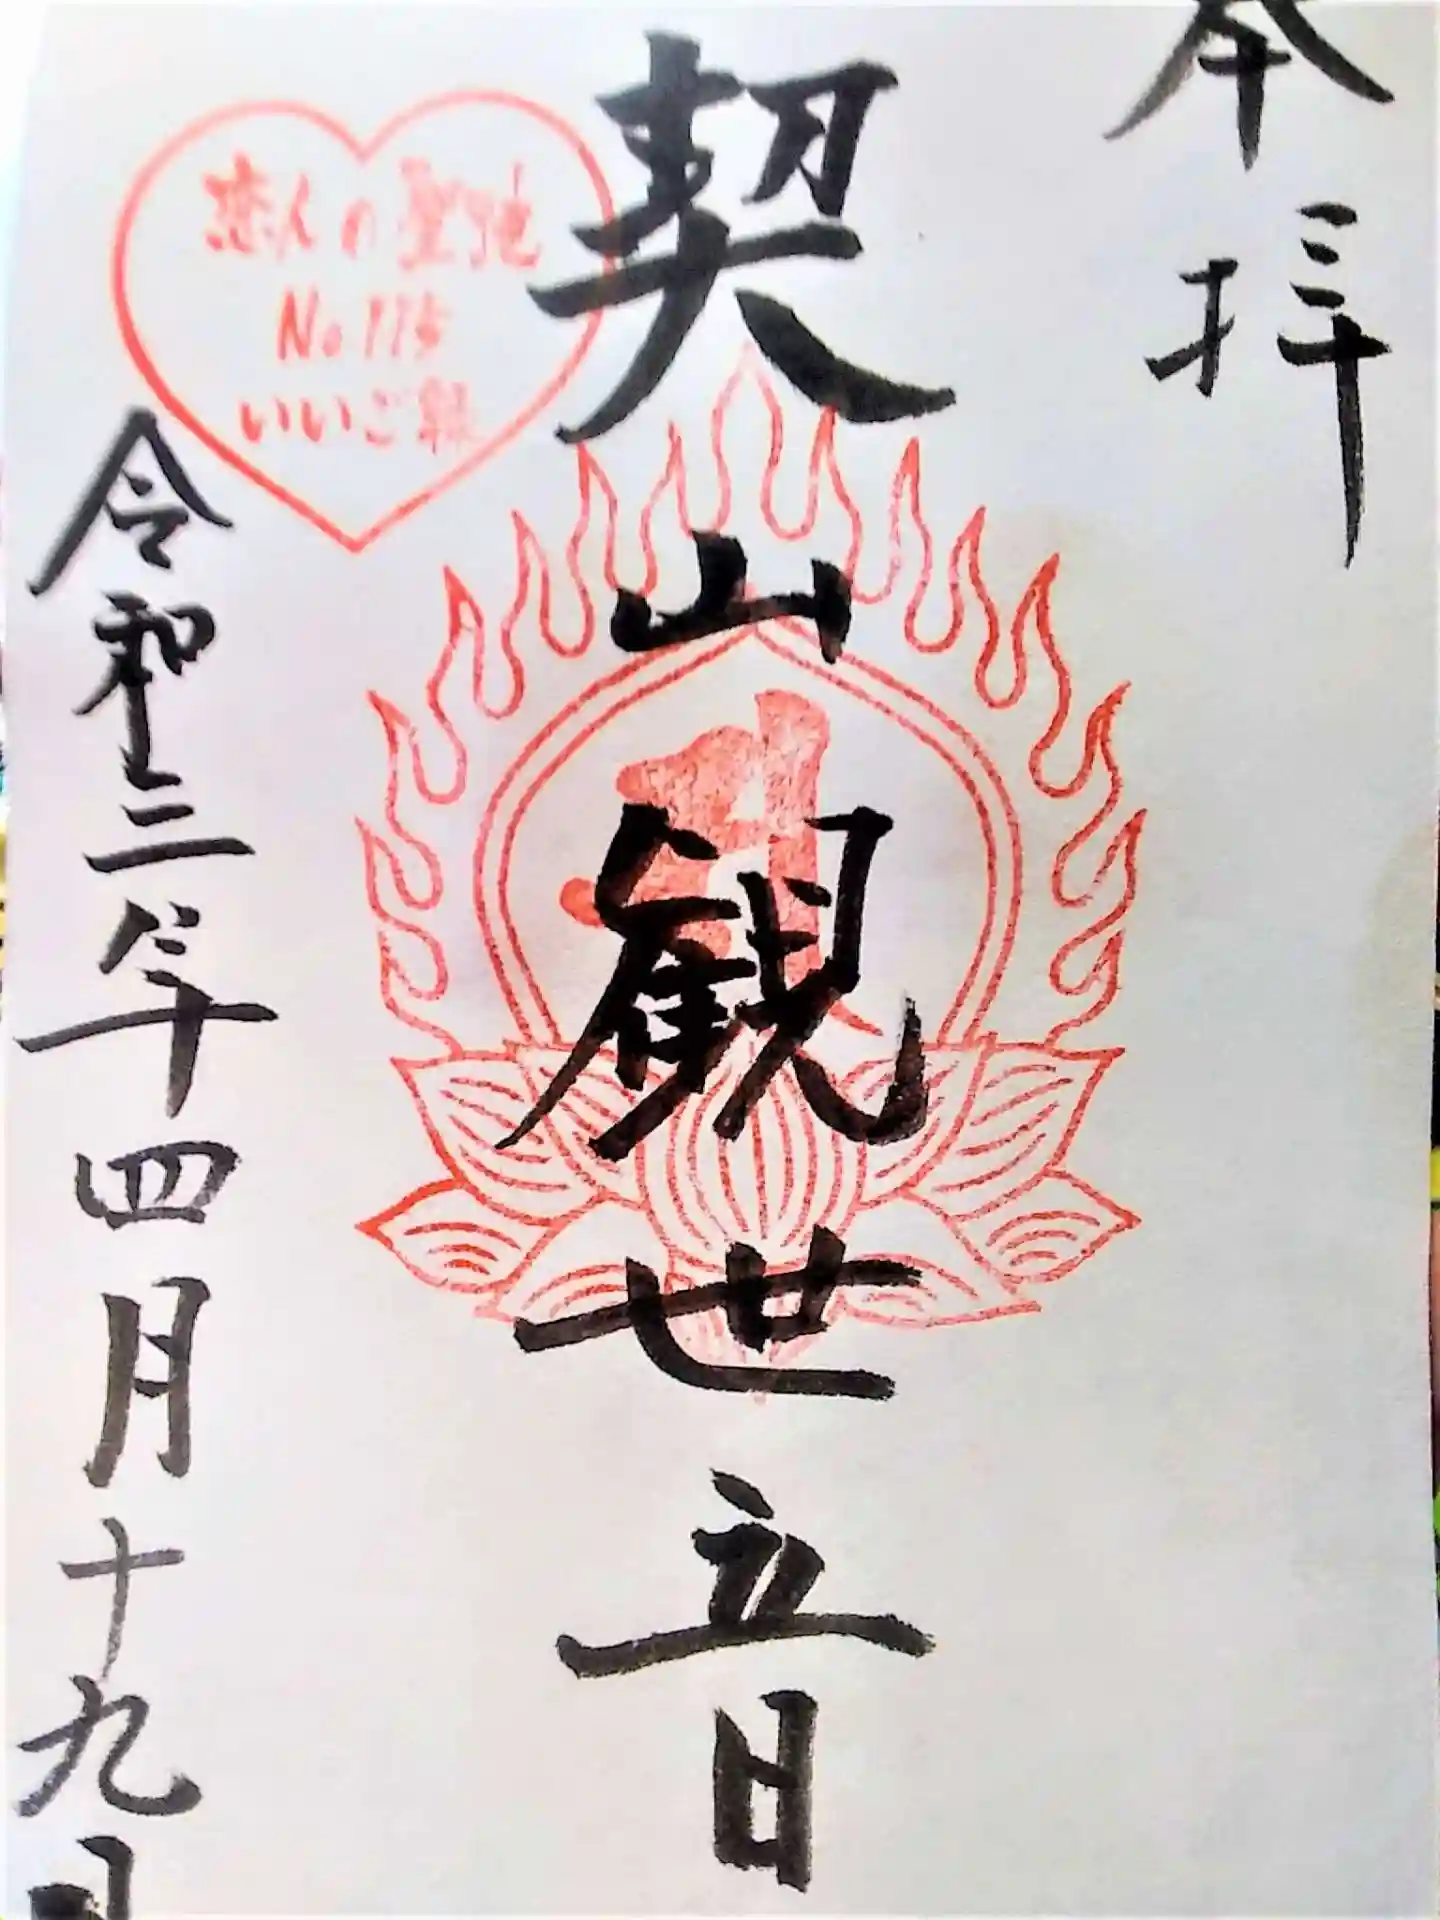 奉拝
契山観世音
恋人の聖地
No115
いいご縁
令和三年四月十九日